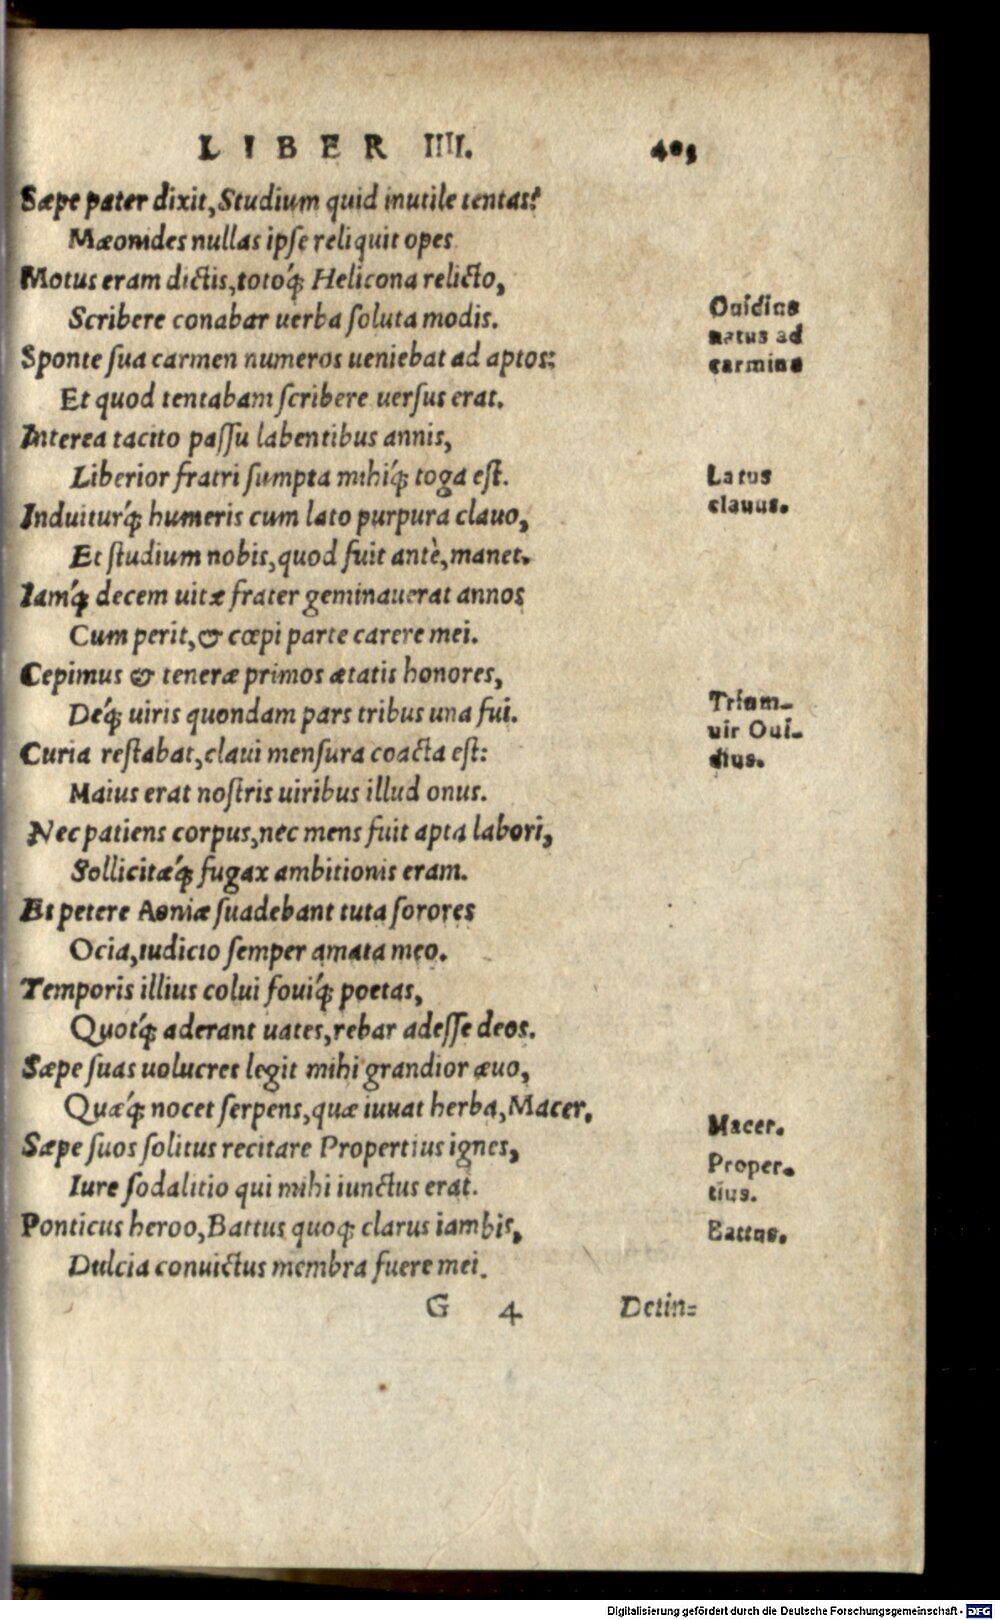 LIBER IIII. 405
Sæpe pater dixit, Studium quid inutile tentas?
Mæonides nullas ipse reliquit opes
Motus eram dictis, totoq́; Helicona relicto,
Scribere conabar uerba soluta modis.
Ouidius
natus ad
carmina
Sponte sua carmen numeros ueniebat ad aptos:
Et quod tentabam scribere uersus erat.
Interea tacito passu labentibus annis,
Liberior fratri sumpta mihiq́; toga est.
Latus
clauus.
Induiturq́; humeris cum lato purpura clauo,
Et studium nobis, quod fuit antè, manet.
Iamq́; decem uitæ frater geminauerat annos
Cum perit, & cœpi parte carere mei.
Cepimus & teneræ primos ætatis honores,
Deq́; uiris quondam pars tribus una fui.
Trium-
uir Oui-
dius.
Curia restabat, claui mensura coacta est:
Maius erat nostris uiribus illud onus.
Nec patiens corpus, nec mens fuit apta labori,
Sollicitæq́; fugax ambitionis eram.
Et petere Aoniæ suadebant tuta sorores
Ocia, iudicio semper amata meo.
Temporis illius colui fouiq́; poetas,
Quotq́; aderant uates, rebar adesse deos.
Sæpe suas uolucres legit mihi grandior æuo,
Quæq́; nocet serpens, quæ iuuat herba, Macer.
Macer.
Sæpe suos solitus recitare Propertius ignes,
Proper-
tius.
Iure sodalitio qui mihi iunctus erat.
Ponticus heroo, Battus quoq; clarus iambis,
Battus.
Dulcia conuictus membra fuere mei.
G 4 Detin=
Digitalisierung gefördert durch die Deutsche Forschungsgemeinschaft - DFG